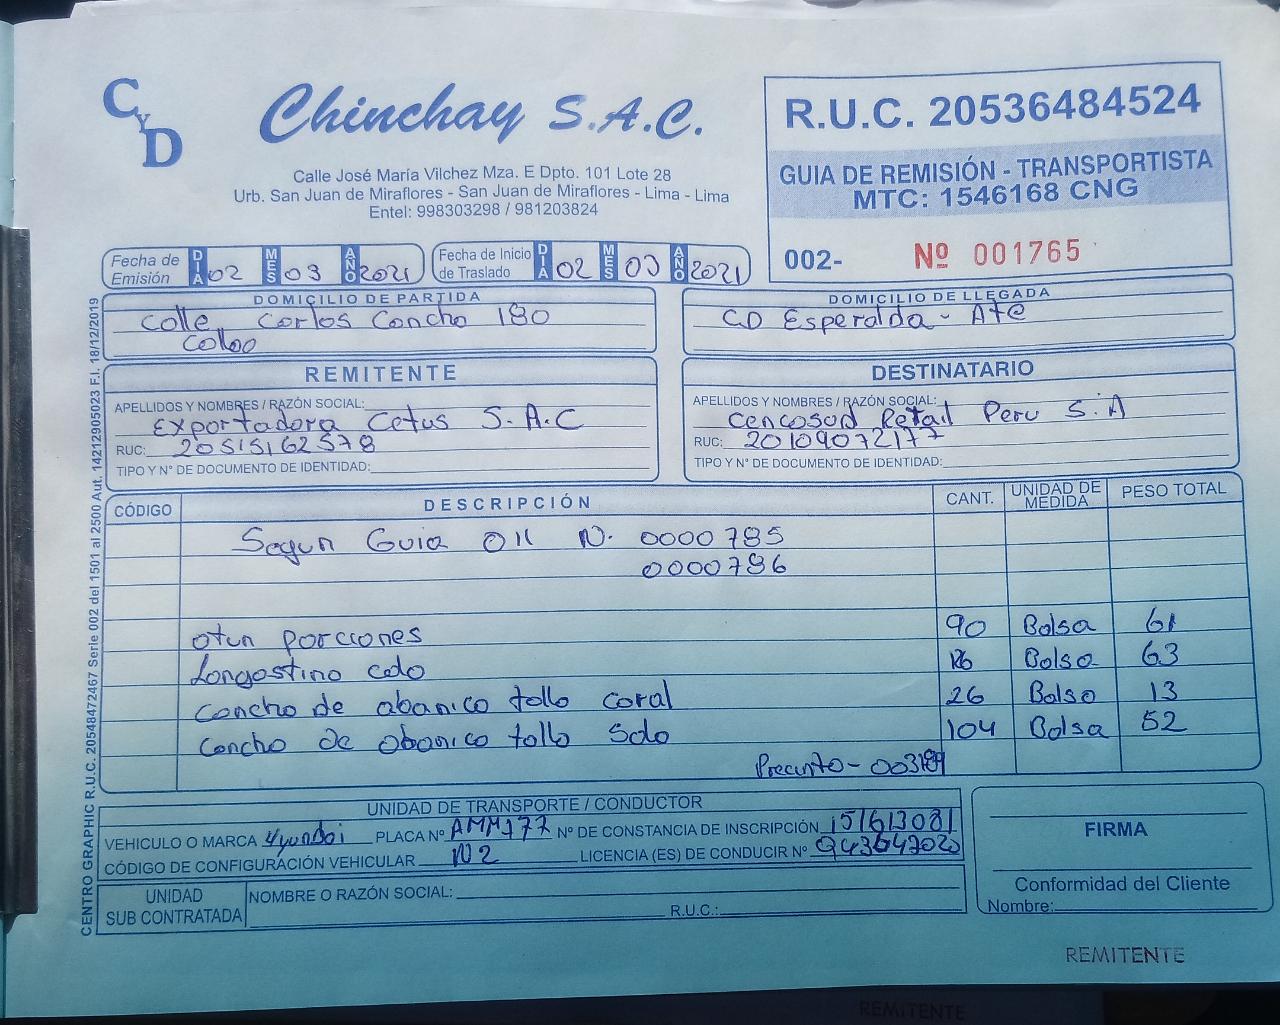 CyD
Chinchay S.A.C.
Calle José María Vilchez Mza. E Dpto. 101 Lote 28
Urb. San Juan de Miraflores - San Juan de Miraflores - Lima - Lima
Entel: 998303298 / 981203824
R.U.C. 20536484524
GUIA DE REMISIÓN - TRANSPORTISTA
MTC: 1546168 CNG
002- Nº 001765
Fecha de Emisión DIA 02 MES 03 AÑO 2021
Fecha de Inicio de Traslado DIA 02 MES 03 AÑO 2021
DOMICILIO DE PARTIDA
Calle Carlos Concha 180
Callao
DOMICILIO DE LLEGADA
CD Esperalda - Ate
REMITENTE
APELLIDOS Y NOMBRES / RAZÓN SOCIAL:
Exportadora Cetus S.A.C
RUC: 20515162578
TIPO Y Nº DE DOCUMENTO DE IDENTIDAD:
DESTINATARIO
APELLIDOS Y NOMBRES / RAZÓN SOCIAL:
Cencosud Retail Peru S.A
RUC: 20109072177
TIPO Y Nº DE DOCUMENTO DE IDENTIDAD:
CÓDIGO DESCRIPCIÓN CANT. UNIDAD DE MEDIDA PESO TOTAL
Segun Guia 011 N. 0000785
0000786
atun porciones 90 Bolsa 61
Langostino cola Bolsa 63
Concha de abanico tallo coral 26 Bolsa 13
Concha de abanico tallo Solo 104 Bolsa 52
Precinto -
UNIDAD DE TRANSPORTE / CONDUCTOR
VEHICULO O MARCA Hyundai PLACA Nº AMM777 Nº DE CONSTANCIA DE INSCRIPCIÓN 151613081
CÓDIGO DE CONFIGURACIÓN VEHICULAR N2 LICENCIA (ES) DE CONDUCIR Nº
UNIDAD SUB CONTRATADA
NOMBRE O RAZÓN SOCIAL:
R.U.C.:
FIRMA
Conformidad del Cliente
Nombre:
REMITENTE
REMITENTE
CENTRO GRAPHIC R.U.C. 20548472467 Serie 002 del 1501 al 2500 Aut. 14212905023 F.I. 18/12/2019